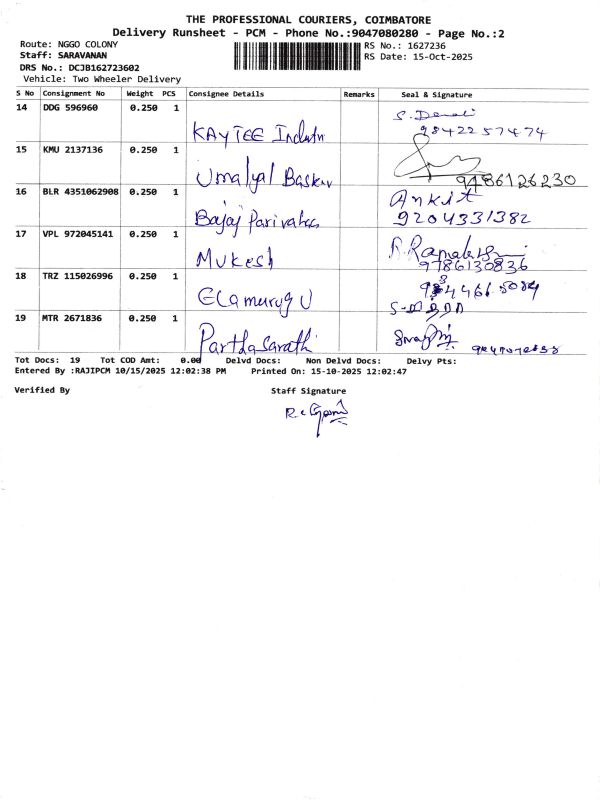 THE PROFESSIONAL COURIERS, COIMBATORE
Delivery Runsheet - PCM - Phone No.:9047080280 - Page No.:2
Route: NGGO COLONY
RS No.: 1627236
Staff: SARAVANAN
RS Date: 15-Oct-2025
DRS No.: DCJB162723602
Vehicle: Two Wheeler Delivery
S No Consignment No Weight PCS Consignee Details Remarks Seal & Signature
14 DDG 596960 0.250 1
KAYTEE S.
9842257474
15 KMU 2137136 0.250 1
Umalyal Baskar
9486126230
16 BLR 4351062908 0.250 1 Ankit
Bajaj 9204331382
17 VPL 972045141 0.250 1
Mukesh
9786130836
18 TRZ 115026996 0.250 1
Elamurugu
19 MTR 2671836 0.250 1
Parthasarathi
Tot Docs: 19 Tot COD Amt: 0.00 Delvd Docs: Non Delvd Docs: Delvy Pts:
Entered By :RAJIPCM 10/15/2025 12:02:38 PM Printed On: 15-10-2025 12:02:47
Verified By Staff Signature